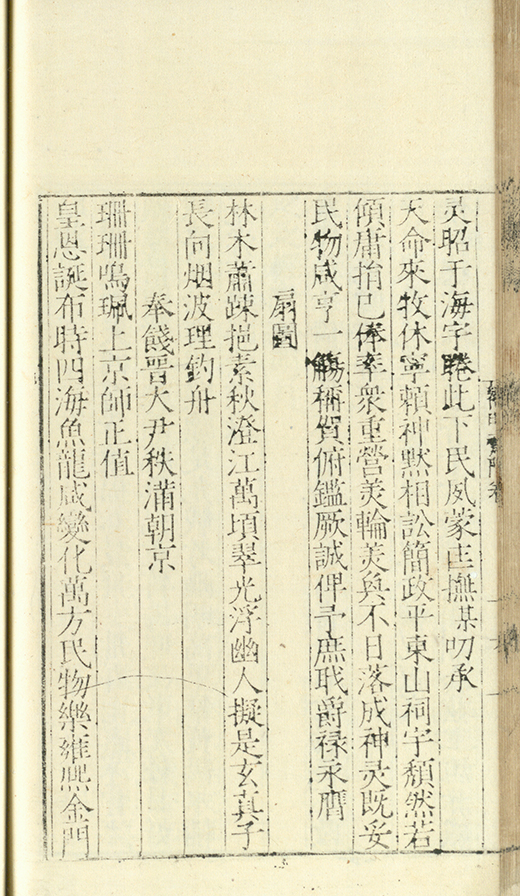 灵昭于海宇睠此下民夙蒙庄撫某叨承
天命來牧休寧賴神黙相訟簡政平東山祠宇頽然若
傾庸捐已俸率衆重營羙輪羙奐不日落成神灵既妥
民物咸亨一觴稱賀俯鑑厥誠俾予庶戩爵禄永膺
扇圖
林木蕭踈挹素秋澄江萬頃翠光浮幽人擬是玄真子
長向烟波理釣舟
奉餞晋大尹秩滿朝京
珊珊鳴珮上京師正值
皇恩誕布時四海魚龍咸變化萬方民物樂雍熈金門